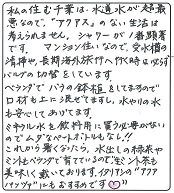 私の住む千葉は、水道水が超最
悪なので、"アクアス"のない生活は
考えられません。シャワーが1番顕著
です。マンション住いなので、受水槽の
清掃や、長期海外旅行へ行く時は必ず
バルブの切替をしています。
ベランダでバラの鉢植をしてますので
ロ材も土に混ぜてますし、水やりの水
も安心してあげてます。
ミネラル水を飲料用に買う必要がない
のでムダなペットボトルもなし!!
これから暑くなったら、水出しの緑茶や
ミントもベランダで育てているので、生ミント茶も
美味しく戴いております。イタリアンの"アクア
パッツァ"にもおすすめです